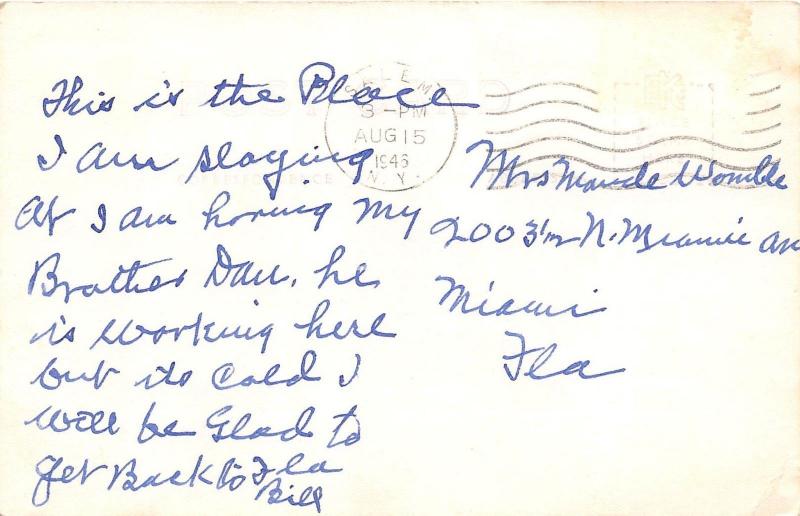 This is the Place
I am staying
At I am haring my
Brother Dan. he
is working here
but its Cold I
will be Glad to
get Back to Fla
Bill
SALEM
3-PM
AUG 15
1946
N.Y.
Mrs Maude Womble
2003½ N. Miamie Av
Miami
Fla